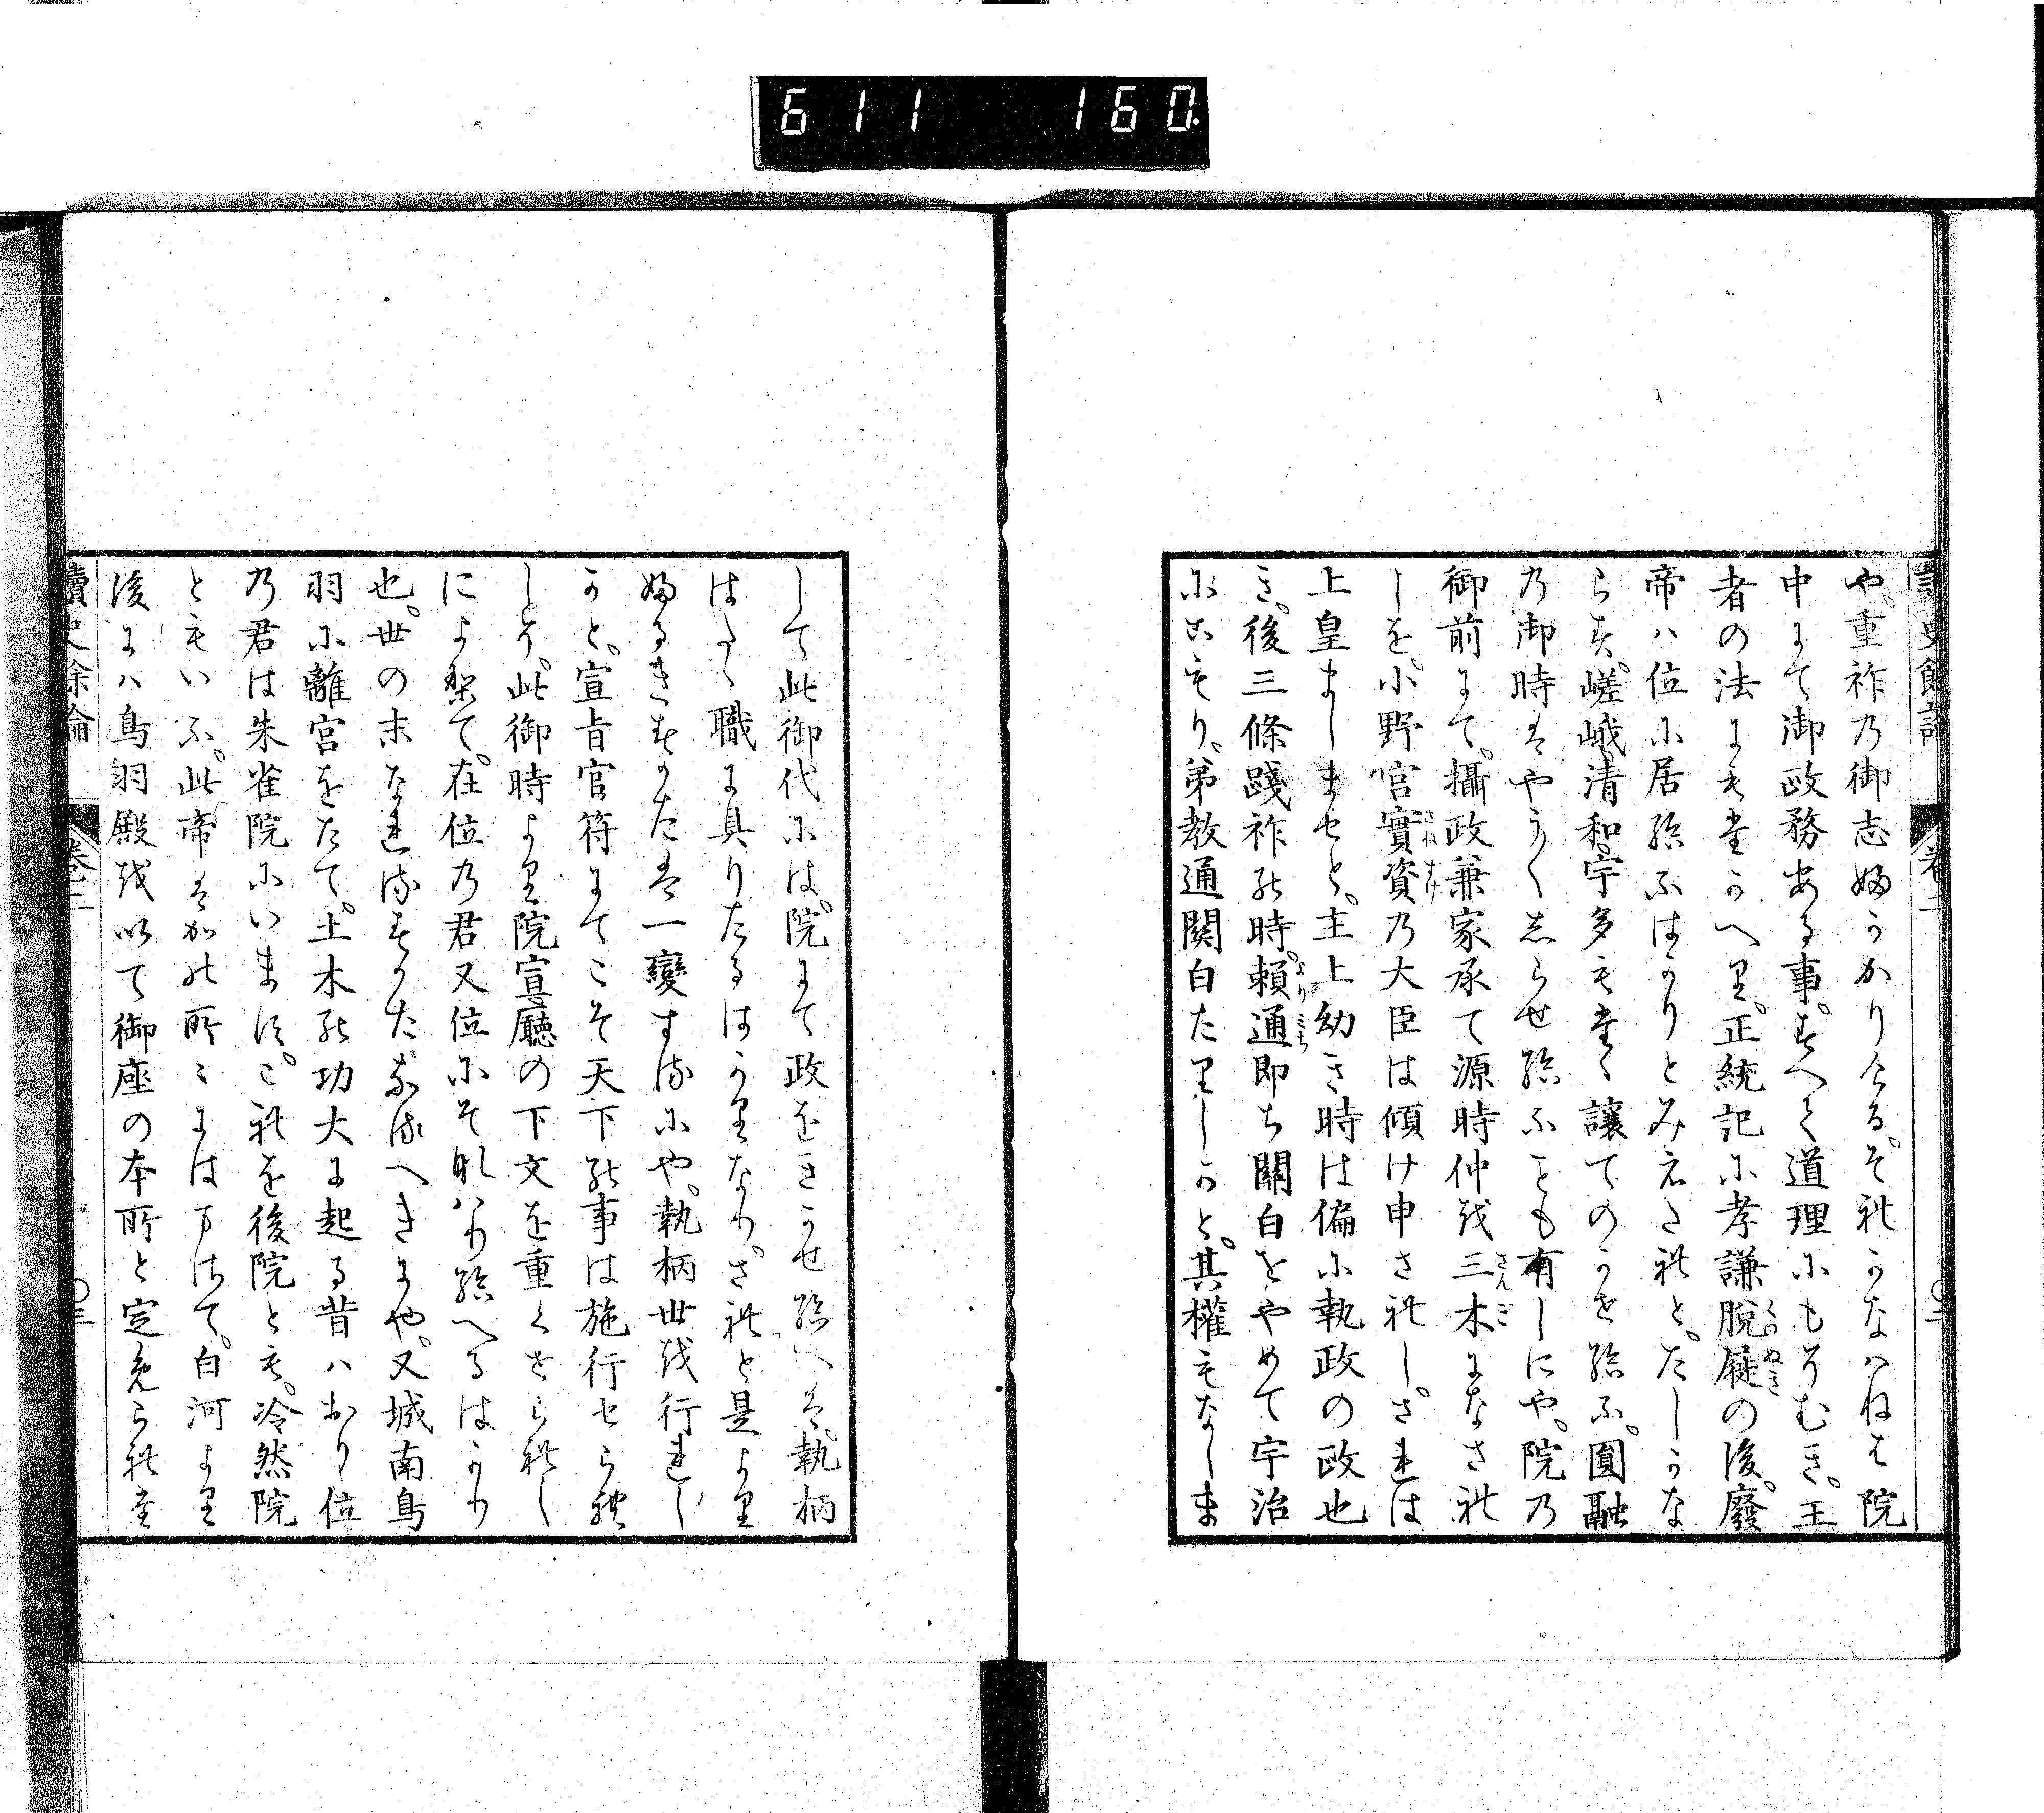 611 160.
讀史餘論 卷二
や。重祚の御志ふかかりける。それかなはねは院
中にて御政務ある事。すへて道理にもそむき。王
者の法にもたかへり。正統記に孝謙脱屣の後。廢
帝ハ位に居給ふはかりとみえたれと。たしかな
らす。嵯峨清和宇多もたゝ譲てのかせ給ふ。圓融
の御時はやうく志らせ給ふことも有しにや。院の
御前にて。攝政兼家承て源時仲を三木になされ
しを。小野宮實資の大臣は傾け申されし。されは
上皇ましませと。主上幼き時は偏に執政の政也
き。後三條踐祚の時。頼通即ち關白をやめて宇治
にこもり。弟教通關白たりしかと。其權もなしま
して此御代には。院にて政をきかせ給へは。執柄
はたゝ職に具りたるはかりなり。されと是より
ふるきすかたは一變するにや。執柄世を行れし
かと。宣旨官符にてこそ天下の事は施行せられ
しに。此御時より院宣廳の下文を重くせられし
によりて。在位の君又位にそなハり給へるはかり
也。世の末なれるすかたなるへきにや。又城南鳥
羽に離宮をたて。土木の功大に起る昔ハおり位
の君は朱雀院にいます。これを後院とも。冷然院
ともいふ。此帝はかの所ゝにはすます。白河より
後にハ鳥羽殿を以て御座の本所と定められた
讀史餘論 卷二